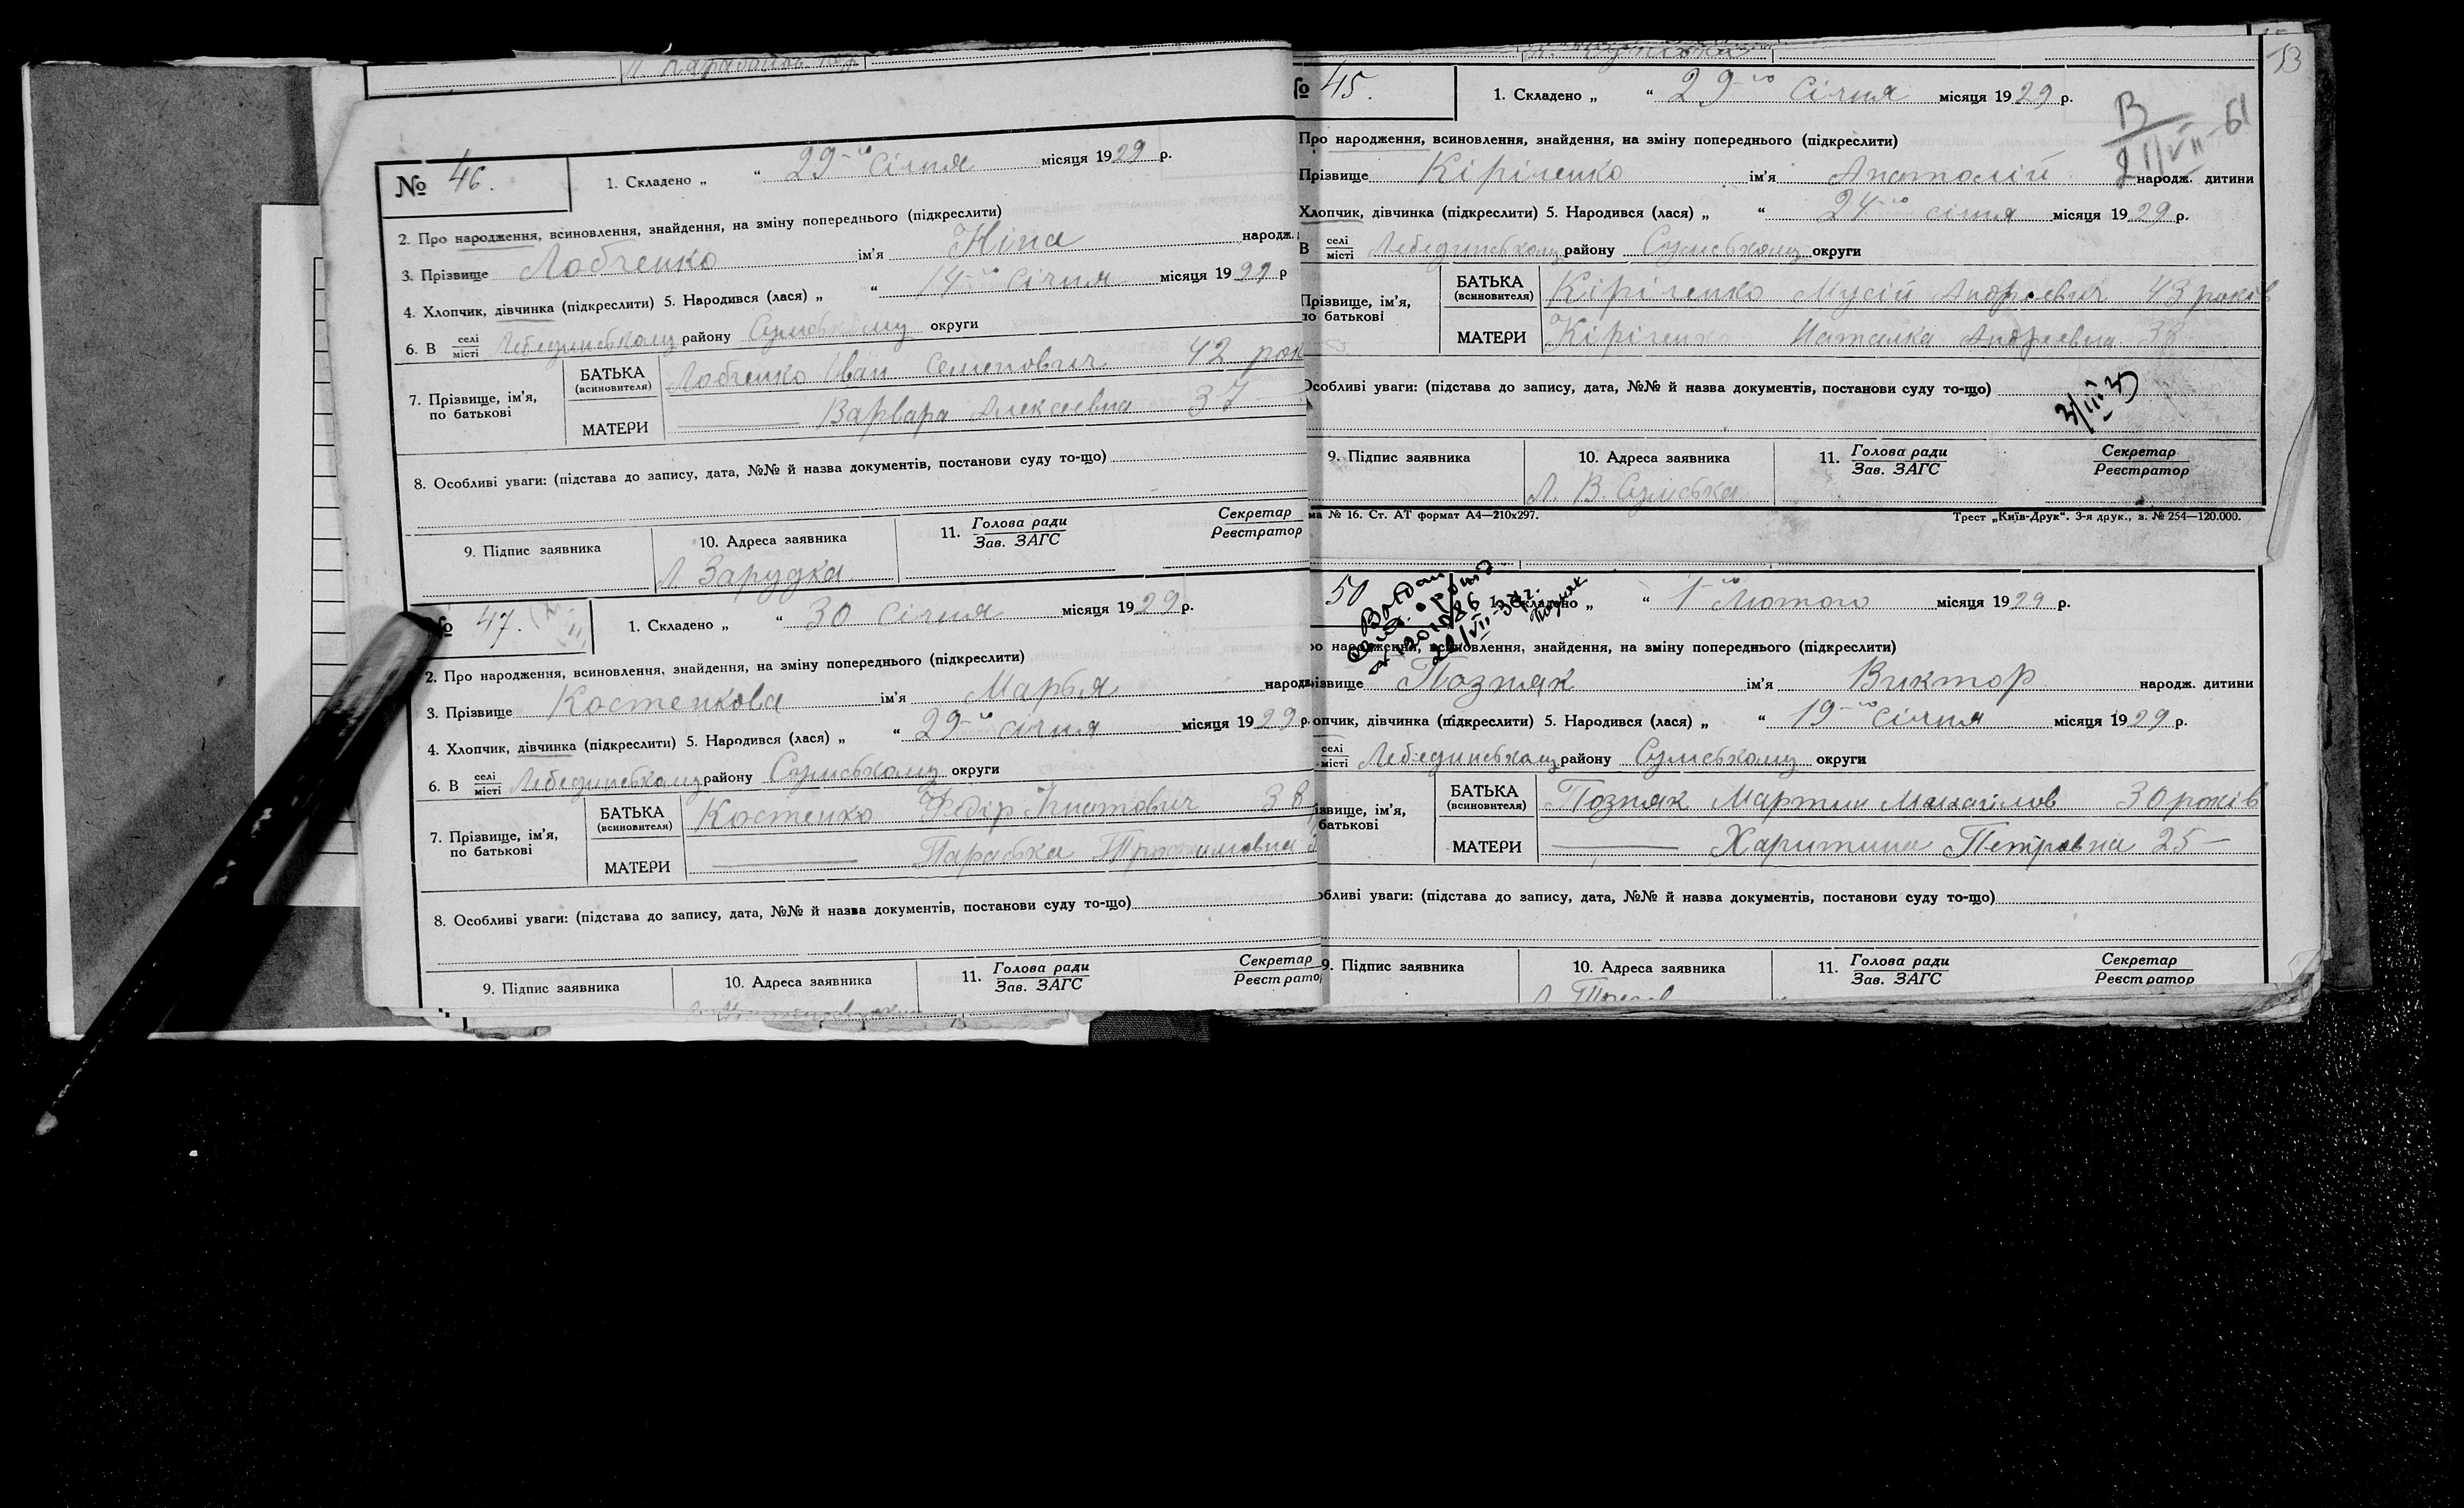 № 46.
1. Складено „ “ 29-го Січня місяця 1929 р.
2. Про народження, всиновлення, знайдення, на зміну попереднього (підкреслити)
3. Прізвище Лобченко ім'я Ніна народж.
4. Хлопчик, дівчинка (підкреслити) 5. Народився (лася) „ “ 14-го Січня місяця 1929 р
6. В селі місті Лебединському району Сумському округи
7. Прізвище, ім'я, по батькові
БАТЬКА (всиновителя) Лобченко Іван Семенович 42 рок
МАТЕРИ Варвара Алексеевна 37
8. Особливі уваги: (підстава до запису, дата, №№ й назва документів, постанови суду то-що)
9. Підпис заявника
10. Адреса заявника
Л Зарудка
11. Голова ради Зав. ЗАГС
Секретар Реєстратор
№ 47.
1. Складено „ “ 30 Січня місяця 1929 р.
2. Про народження, всиновлення, знайдення, на зміну попереднього (підкреслити)
3. Прізвище Костенкова ім'я Марья народж
4. Хлопчик, дівчинка (підкреслити) 5. Народився (лася) „ “ 29-го січня місяця 1929 р.
6. В селі місті Лебединському району Сумському округи
7. Прізвище, ім'я, по батькові
БАТЬКА (всиновителя) Костенко Федір Кнатович 38
МАТЕРИ Параска Трохимовна
8. Особливі уваги: (підстава до запису, дата, №№ й назва документів, постанови суду то-що)
9. Підпис заявника
10. Адреса заявника
11. Голова ради Зав. ЗАГС
Секретар Реєстратор
13
№ 45.
1. Складено „ “ 29-го Січня місяця 1929 р.
Про народження, всиновлення, знайдення, на зміну попереднього (підкреслити)
В
21/VII-61
Прізвище Кіріченко ім'я Анатолій народж. дитини
Хлопчик, дівчинка (підкреслити) 5. Народився (лася) „ “ 24-го січня місяця 1929 р.
В селі місті Лебединському району Сумському округи
Прізвище, ім'я, по батькові
БАТЬКА (всиновителя) Кіріченко Мусій Андреевич 43 років
МАТЕРИ Кіріченко Наталка Андреевна 38
Особливі уваги: (підстава до запису, дата, №№ й назва документів, постанови суду то-що)
9. Підпис заявника
10. Адреса заявника
Л. В. Сумська
11. Голова ради Зав. ЗАГС
Секретар Реєстратор
ма № 16. Ст. АТ формат А4—210х297.
Трест „Київ-Друк“. 3-я друк., з. № 254—120.000.
50
1. Складено „ “ 1-го Лютого місяця 1929 р.
ро народження, всиновлення, знайдення, на зміну попереднього (підкреслити)
різвище Позняк ім'я Виктор народж. дитини
опчик, дівчинка (підкреслити) 5. Народився (лася) „ “ 19-го січня місяця 1929 р.
селі місті Лебединському району Сумському округи
ізвище, ім'я, батькові
БАТЬКА (всиновителя) Позняк Мартин Михайлов 30 років
МАТЕРИ Харитина Петровна 25
обливі уваги: (підстава до запису, дата, №№ й назва документів, постанови суду то-що)
9. Підпис заявника
10. Адреса заявника
11. Голова ради Зав. ЗАГС
Секретар Реєстратор